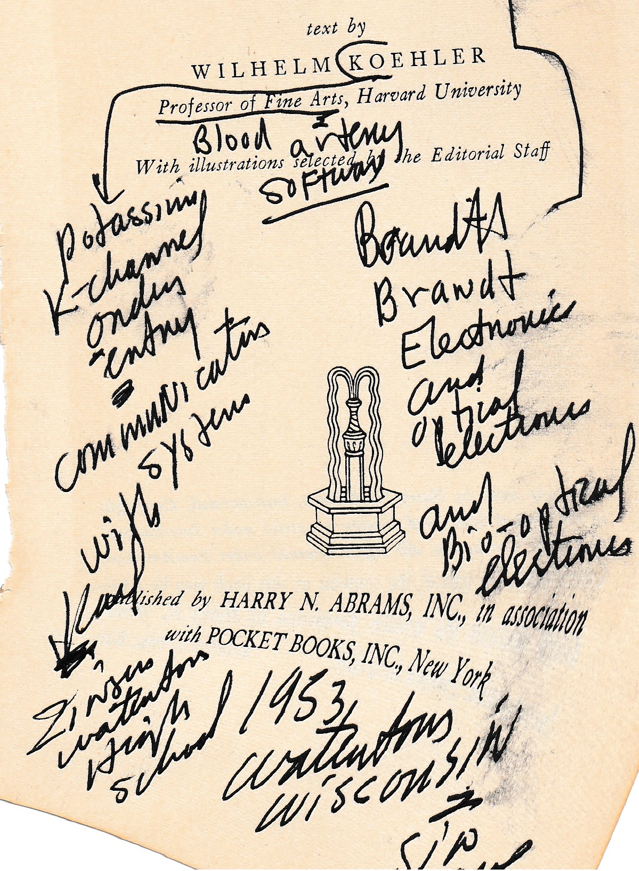 text by
WILHELM KOEHLER
Professor of Fine Arts, Harvard University
Blood artery
With illustrations selected by the Editorial Staff
software
potassium
K-channel
entry
communication
systems
with
Karl
watertown
High
School
Brandts
Brandt
Electronics
and
optical
electronics
and
Bio-optical
electronics
Published by HARRY N. ABRAMS, INC., in association
with POCKET BOOKS, INC., New York
1953,
watertown
wisconsin